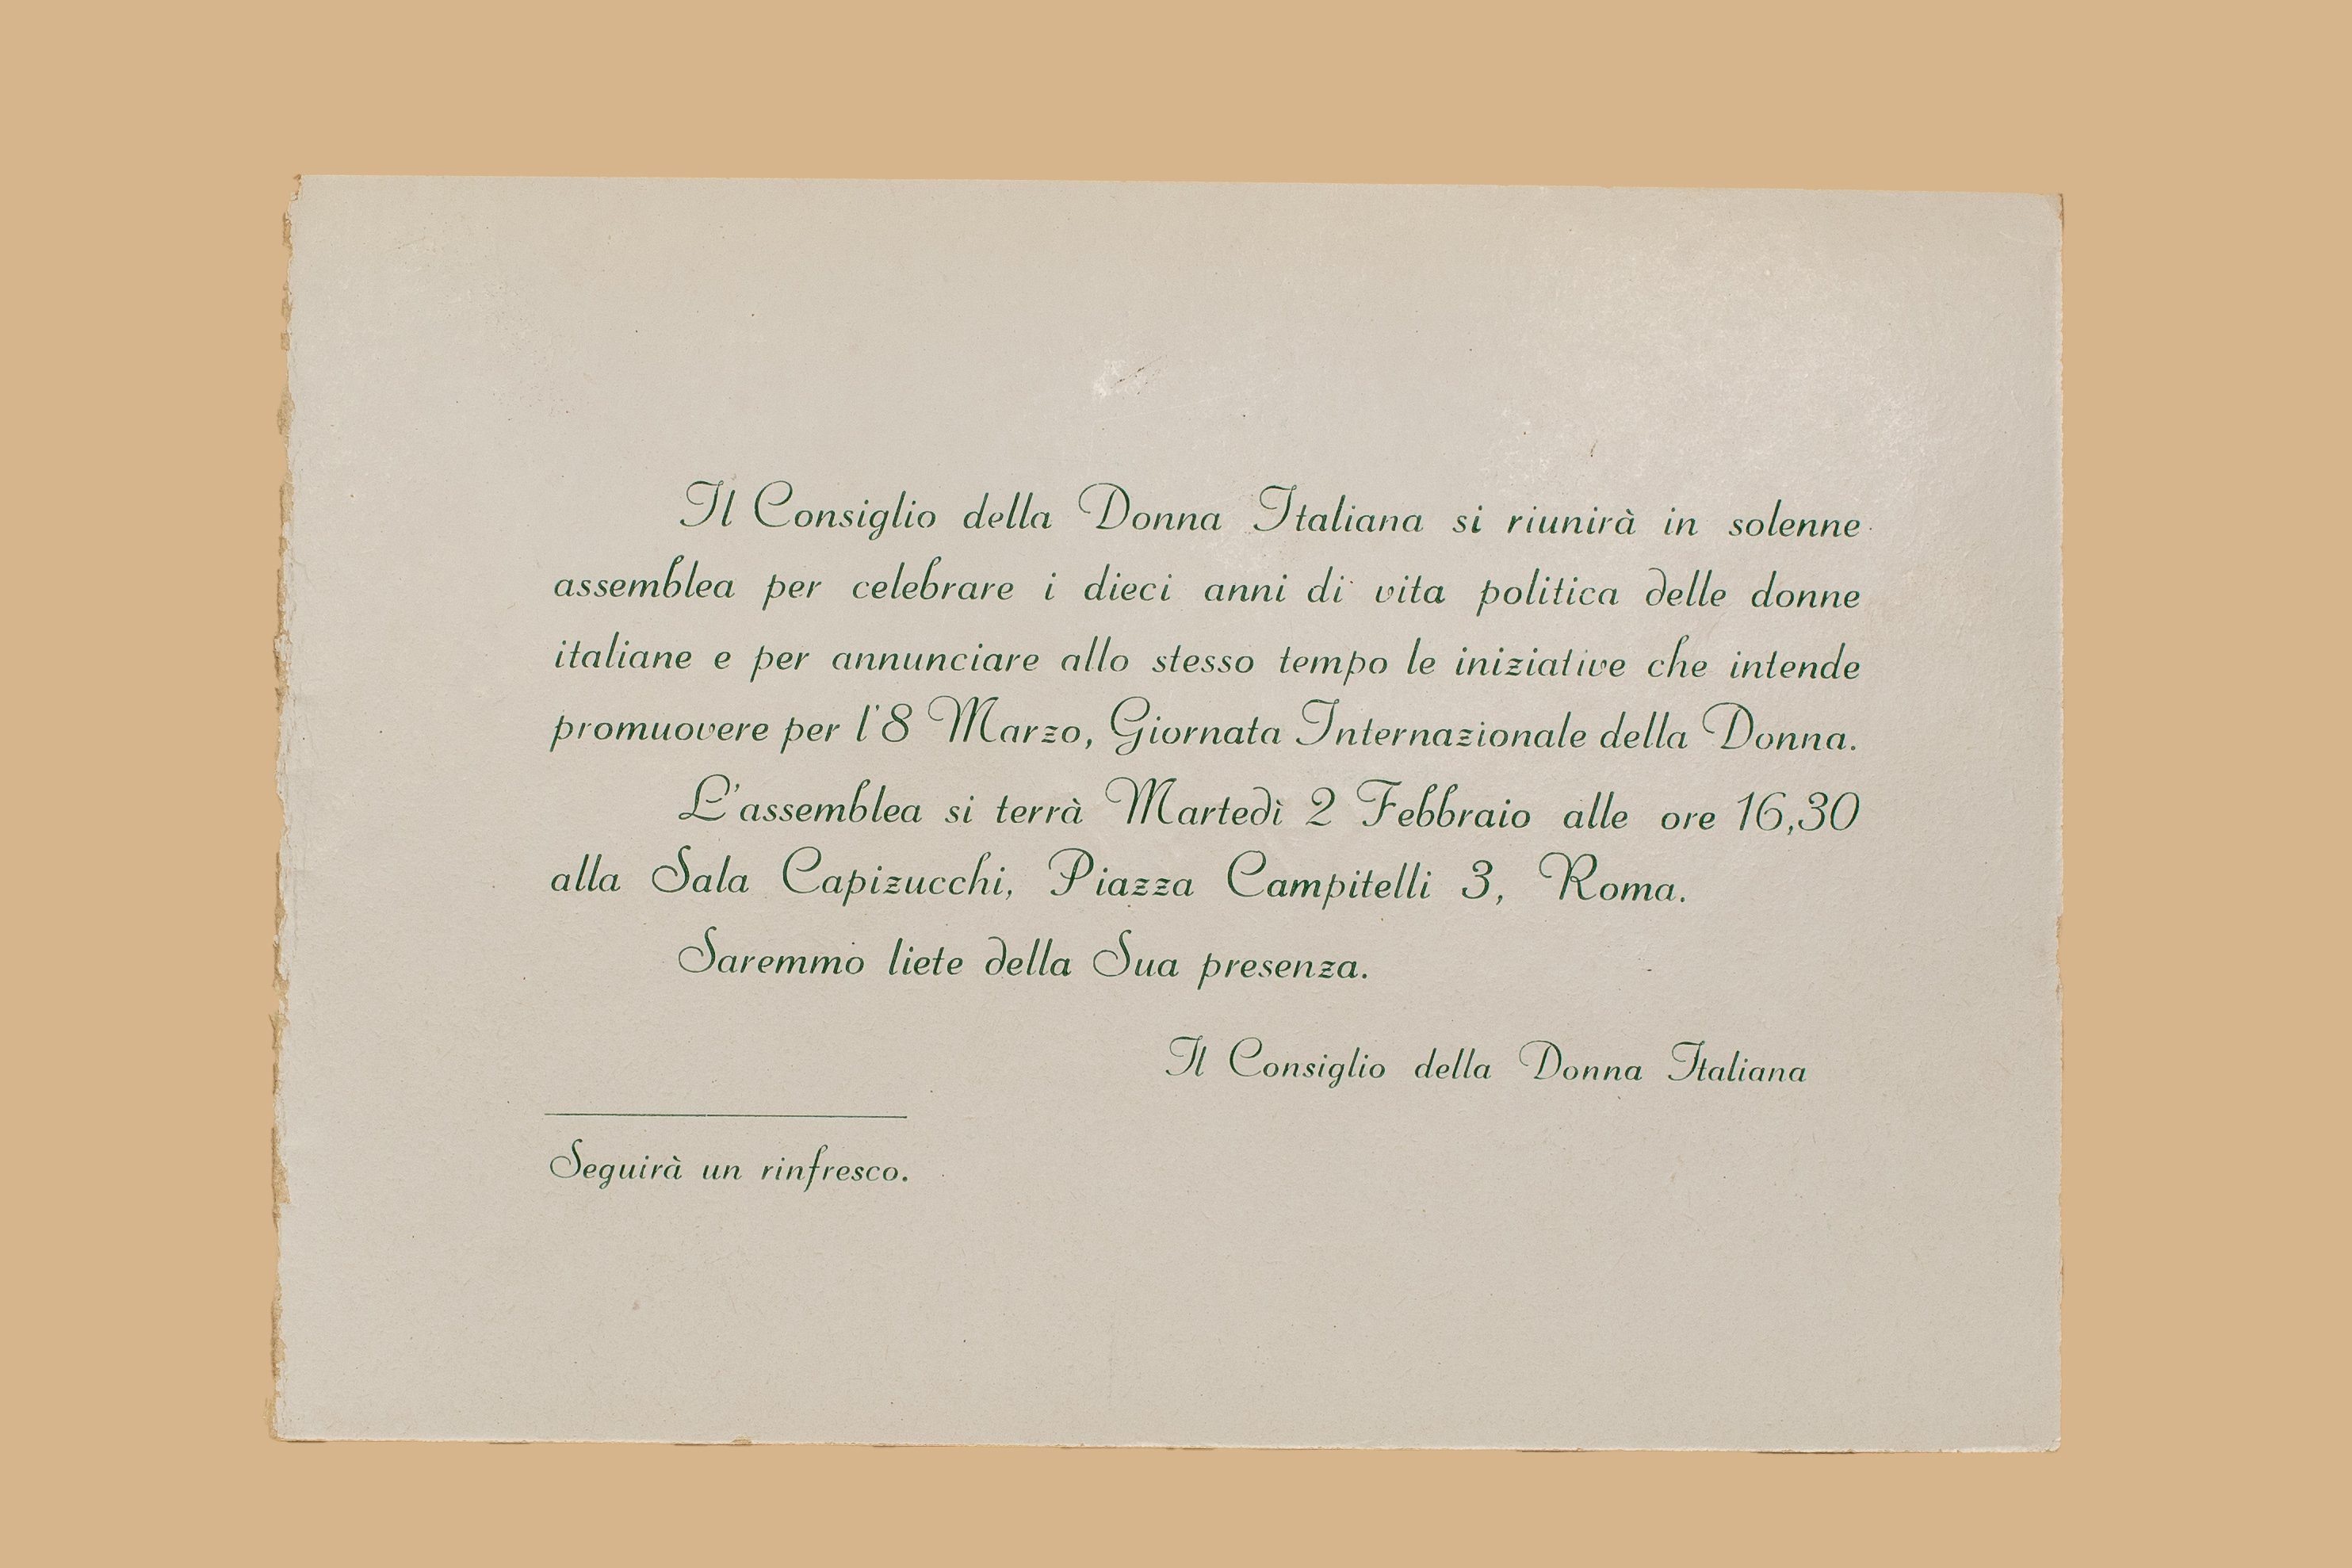 Il Consiglio della Donna Italiana si riunirà in solenne
assemblea per celebrare i dieci anni di vita politica delle donne
italiane e per annunciare allo stesso tempo le iniziative che intende
promuovere per l'8 Marzo, Giornata Internazionale della Donna.
L'assemblea si terrà Martedì 2 Febbraio alle ore 16,30
alla Sala Capizucchi, Piazza Campitelli 3, Roma.
Saremmo liete della Sua presenza.
Il Consiglio della Donna Italiana
Seguirà un rinfresco.